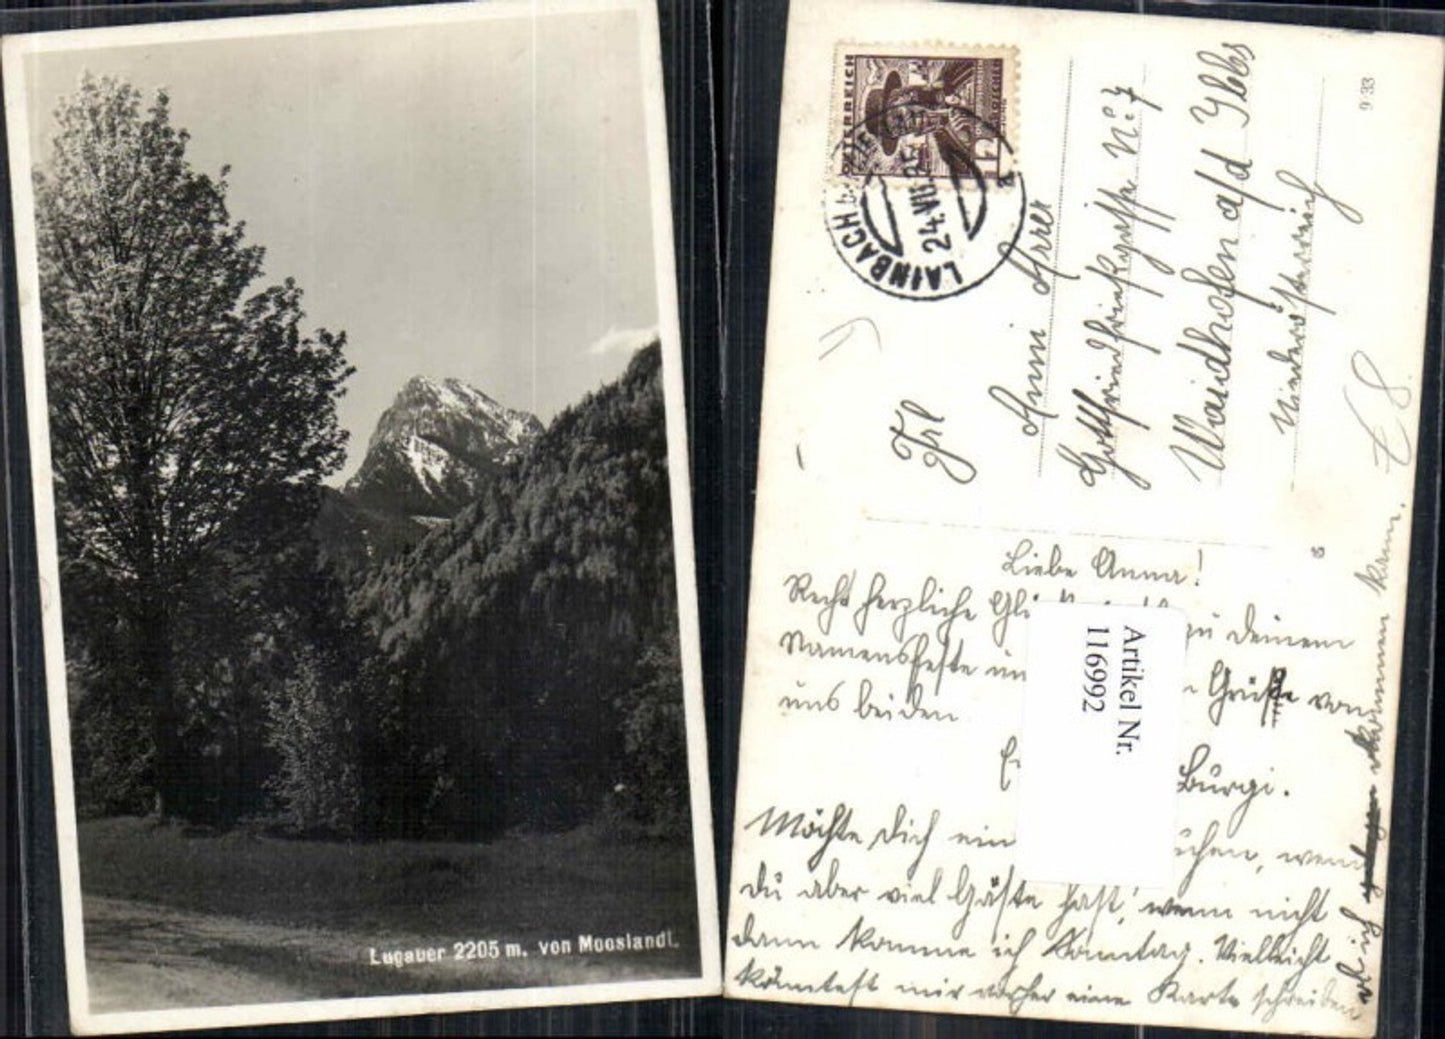 Lugauer 2205 m. von Mooslandl.
ÖSTERREICH
12
LAINBACH
24.VII.35
9 33
Frl
Anni
Gottfriedfrießgasse Nr. 7
Waidhofen a/d Ybbs
Niederösterreich
€8
Liebe Anna!
Recht herzliche zu Deinem
Namensfeste Grüße von
uns beiden
Burgi.
Möchte Dich ein wenn
du aber viel Gäste hast, wenn nicht
dann komme ich Sonntag. Vielleicht
könntest mir vorher eine Karte schreiben
ob ich kommen kann.
Artikel Nr.
116992